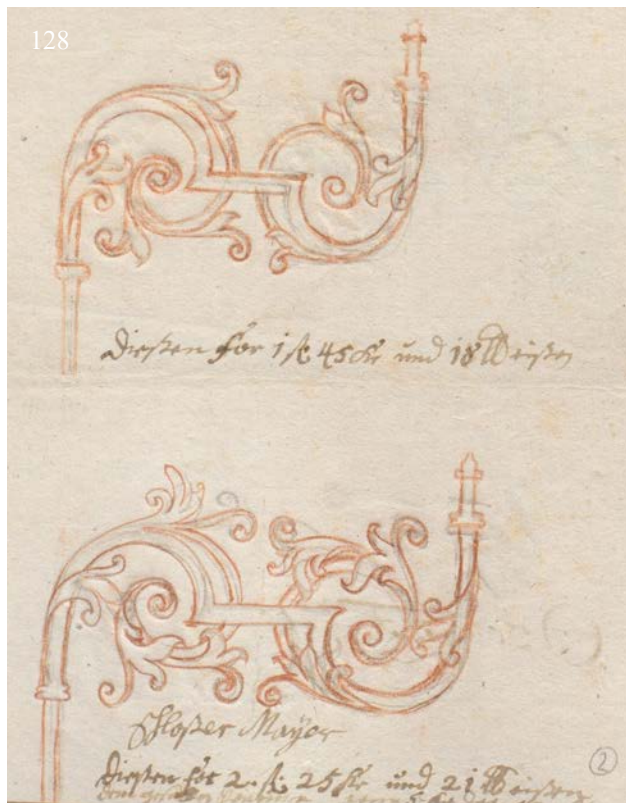 128
diesten für 1 fl 45 Kr und 18 ℔ eisen
Schloßer Mayor
diesten für 2 fl 25 Kr und 21 ℔ eisen
2